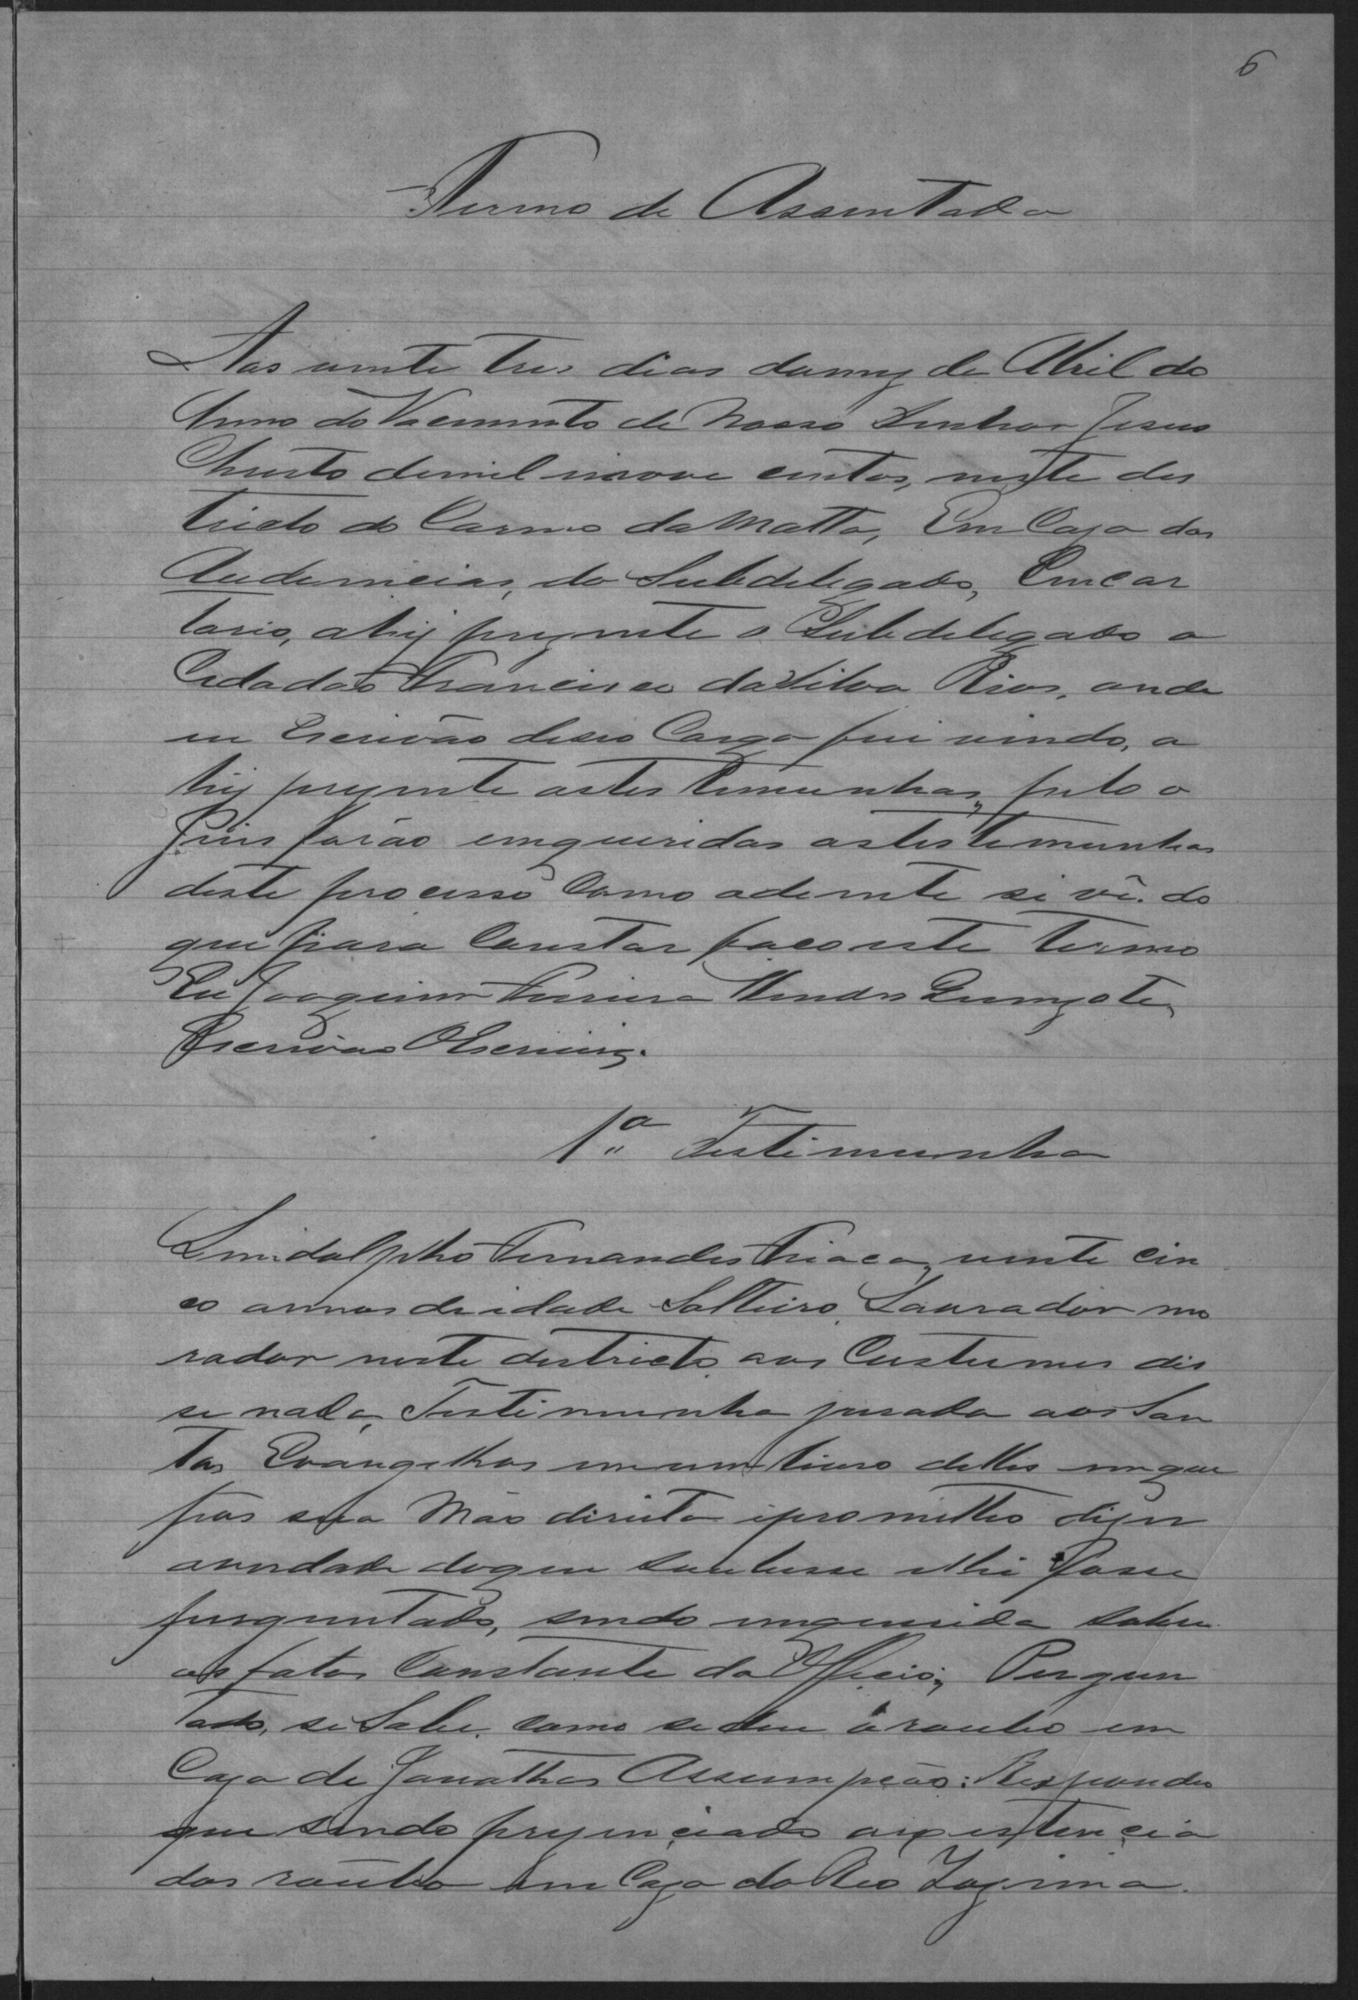 6
Termo de Assentada
Aos vinte tres dias do mez de Abril do
Anno do Nacimento de Nosso Senhor Jesus
Christo de mil nove centos, neste des
tricto do Carmo da Matta, Em Caza das
Audiencias, do Subdelegado, Em car
torio, ahij prezente o Subdelegado o
Cidadão Francisco da Silva Rios, onde
eu Escrivão desse Cargo fui vindo, a
hij prezente as testemunhas, pelo o
Juis forão enqueridas as testemunhas
deste processo Como adeente si vê. do
que para Constar faco este Termo
Eu Joaquim Ferreira Mendes
Escrivão Oscrevij.
1ª Testimunha
Fernandes vinte cin
co annos de idade Solteiro, Lavrador mo
rador neste destricto, aos Custumes dis
se nada, Testimunha jurada aos San
tos Evangelhos em um livro delles em que
pos sua Mão direita e prometteo dizer
averdade do que soubesse e lhi fosse
perguntado, sendo enquerida sobre
os fatos Constante do Officio; Pergun
tado, se Sabe como se deu o roubo em
Caza de Jonathas Assumpção: Respondeo
que sendo prezenciado a existencia
dos roubo em Caza do Reo